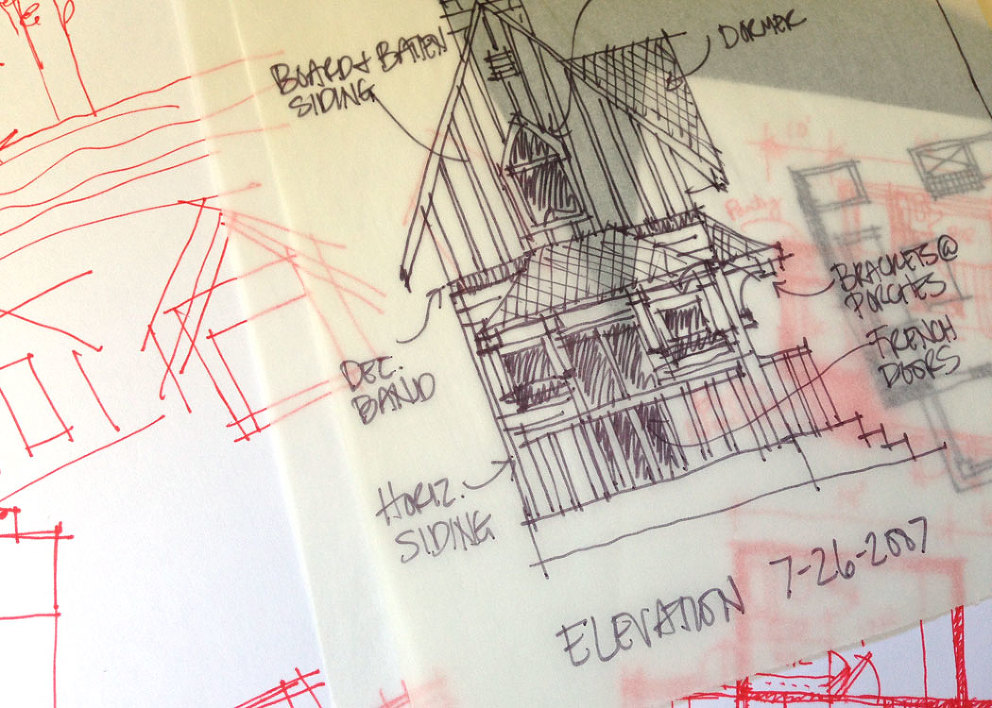 BOARD & BATTEN
SIDING
DORMER
BRACKETS @
PORCHES
FRENCH
DOORS
DEC.
BAND
HORIZ.
SIDING
ELEVATION 7-26-2007